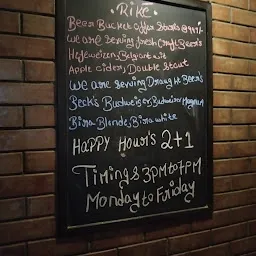 RIKE
Beer Bucket offer Starts @ 999/-
we are serving fresh Craft Beer's
Hefeweizen, Belgian wit
Apple cider, Double Stout
we are serving Draught Beer's
Beck's Budweiser, Budweiser Magnum
Bira Blonde, Bira white
HAPPY Hour's 2+1
Timings 3PM to 7PM
Monday to Friday